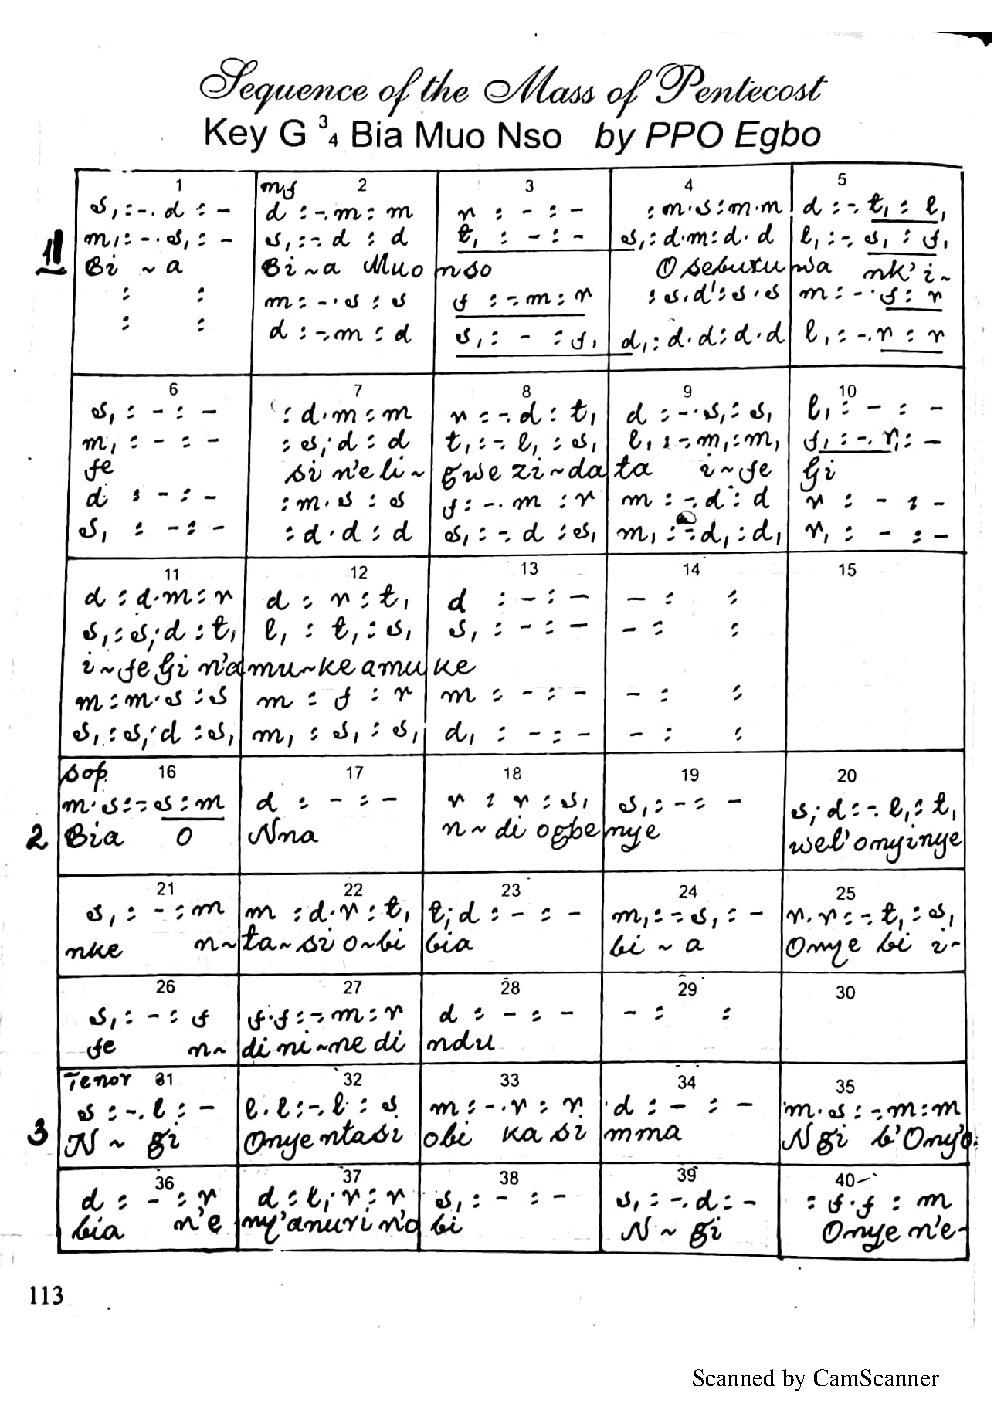 Sequence of the Mass of Pentecost
Key G 3/4 Bia Muo Nso by PPO Egbo
1 mf 2 3 4 5
s, :-. d : - d :-. m : m r : - : - : m . s : m . m d :-. t, : l,
1 m, :-. s, : - s, :-. d : d t, : - : - s, : d . m : d . d l, :-. s, : f,
Bi ~ a Bi ~ a Muo nso O sebutu wa nk'i-
: : m :-. s : s f :-. m : r : s . d' : s . s m :-. f : r
: : d :-. m : d s, : - : f, d, : d . d : d . d l, :-. r : r
6 7 8 9 10
s, : - : - : d . m : m r :-. d : t, d :-. s, : s, l, : - : -
m, : - : - : s, . d : d t, :-. l, : s, l, :-. m, : m, f, :-. r, : -
fe si n'eli~ gwe zi~da ta i~fe Gi
d : - : - : m . s : s f :-. m : r m :-. d : d r : - : -
s, : - : - : d . d : d s, :-. d : s, m, :-. d, : d, r, : - : -
11 12 13 14 15
d : d . m : r d : r : t, d : - : - - : :
s, : s, . d : t, l, : t, : s, s, : - : - - : :
i~fe Gi n'a mu~ke amu ke
m : m . s : s m : f : r m : - : - - : :
s, : s, . d : s, m, : s, : s, d, : - : - - : :
Sop. 16 17 18 19 20
m . s :-. s : m d : - : - r : r : s, s, : - : - s, . d :-. l, : t,
2 Bia O Nna n~di ogbe nye wel'onyinye
21 22 23 24 25
s, : - : m m : d . r : t, t, . d : - : - m, :-. s, : - r . r :-. t, : s,
nke n~ ta~si o~bi bia bi ~ a Onye bi i-
26 27 28 29 30
s, : - : f f . f :-. m : r d : - : - - : :
fe n~ di ni~ne di ndu
Tenor 31 32 33 34 35
s :-. l : - l . l :-. l : s m :-. r : r d : - : - m . s :-. m : m
3 N ~ gi Onye ntasi obi ka si mma Ngi b'Ony'o
36 37 38 39 40
d : - : r d : l, . r : r s, : - : - s, :-. d : - : f . f : m
bia n'e ny'anuri n'o bi N ~ gi Onye n'e-
113
Scanned by CamScanner